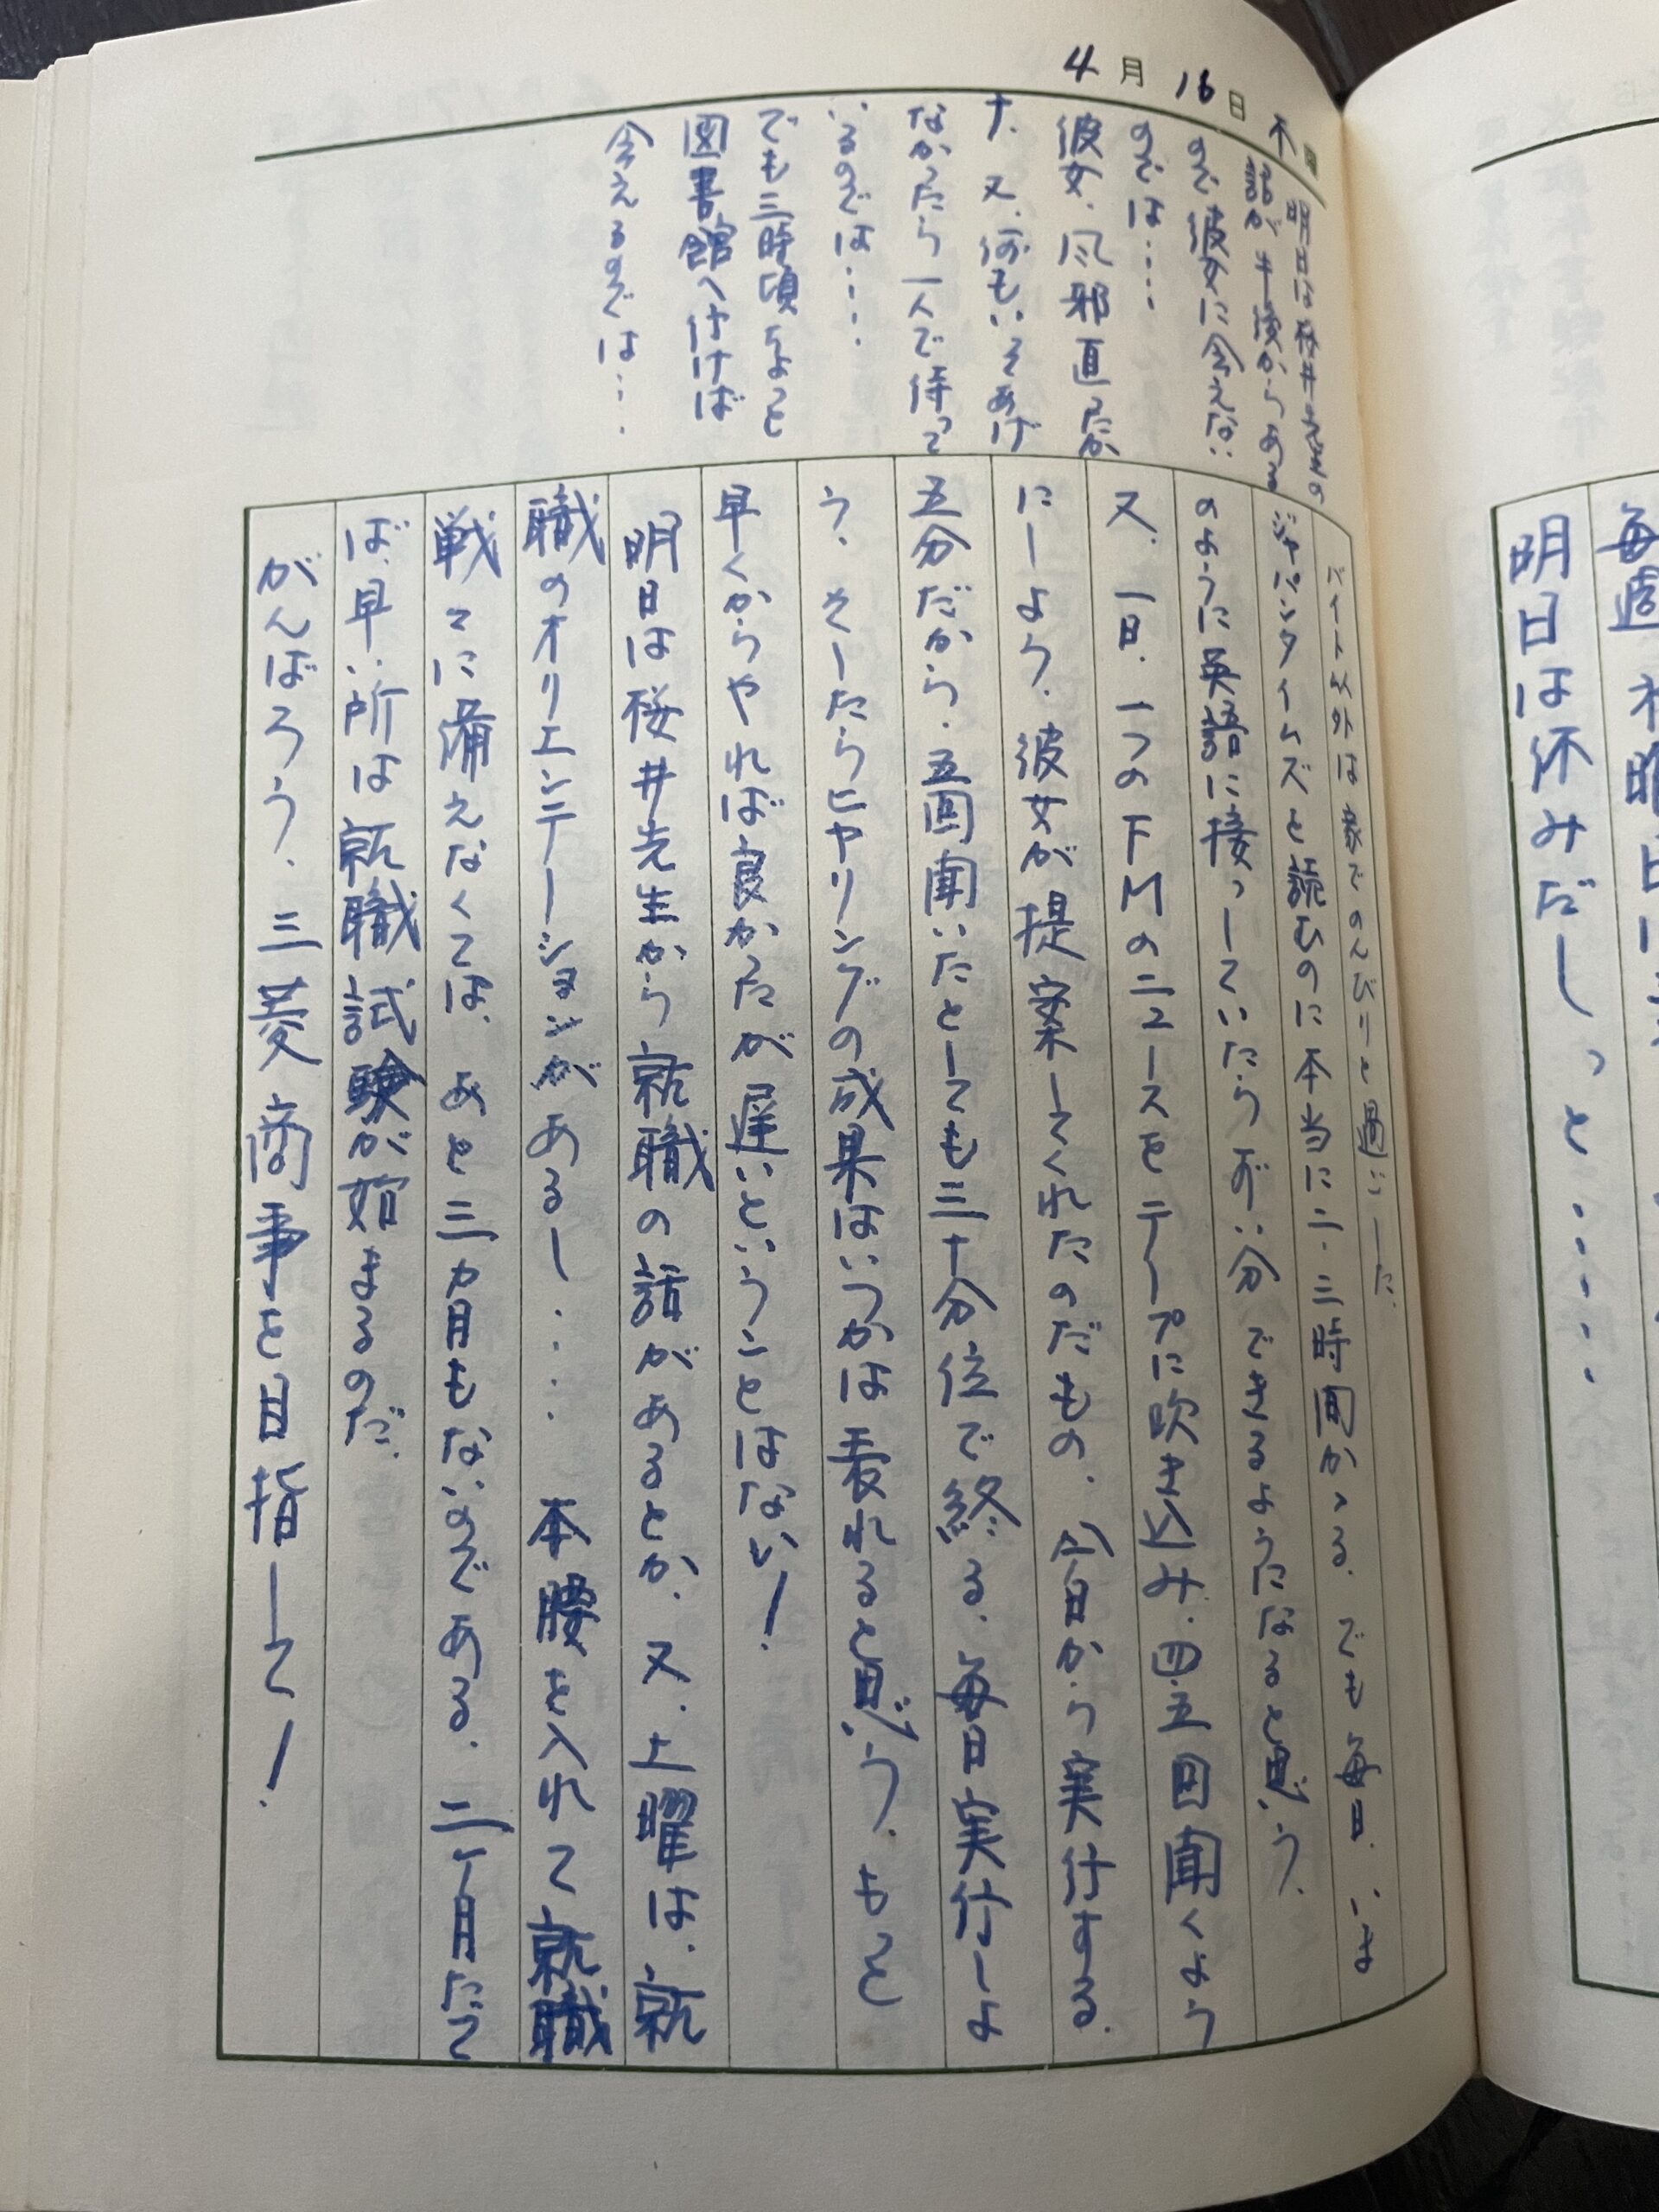 4月16日 木曜
明日は桜井先生の
話が午後からある
ので彼女に会えない
のでは……
彼女、風邪直ったか
ナ、又、何もいそあげ
なかったら一人で待って
いるのでは……
でも三時頃なっと
図書館へ行けば
会えるのでは……
バイト以外は家でのんびりと過ごした。
ジャパンタイムズを読むのに本当に二、三時間かゝる。でも毎日、いま
のように英語に接っしていたらずい分できるようになると思う。
又、一日、一つのFMのニュースをテープに吹き込み、四、五回聞くよう
にしよう。彼女が提案してくれたのだもの、今日から実行する。
五分だから、五回聞いたとしても三十分位で終る。毎日実行しよ
う。そしたらヒヤリングの成果はいつかは表れると思う。もっと
早くからやれば良かったが遅いということはない!
明日は桜井先生から就職の話があるとか。又、土曜は、就
職のオリエンテーションがあるし……本腰を入れて就職
戦マに備えなくては、あと三ヵ月もないのである。三ヶ月たて
ば、早い所は就職試験が始まるのだ。
がんばろう、三菱商事を目指して!
毎週
明日は休みだしっと……